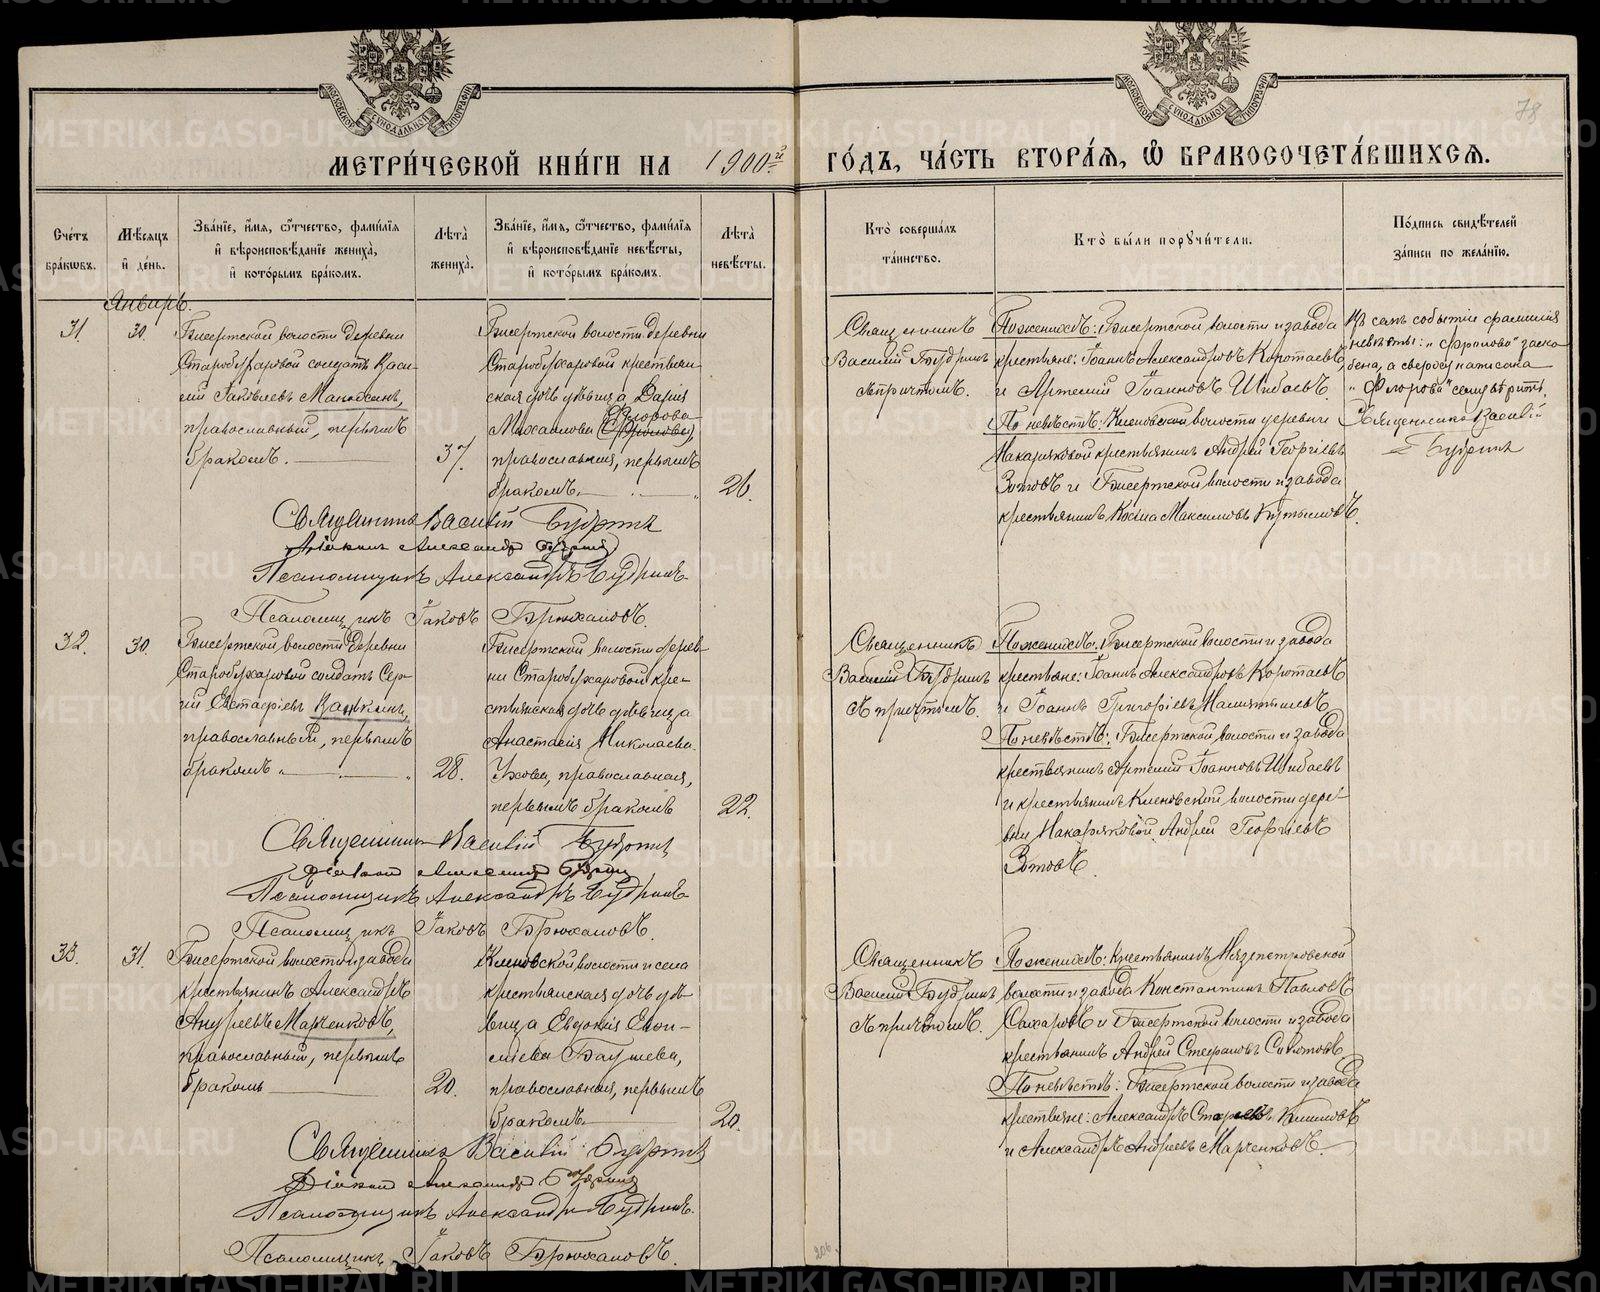 МЕТРИ́ЧЕСКОЙ КНИ́ГИ НА 1900й
ГО́ДЪ, ЧА́СТЬ ВТОРА́Ѧ, Ѡ҆ БРАКОСОЧЕТА́ВШИХСѦ.
78
Сче́тъ бра́кѡвъ.
Мѣ́сѧцъ и҆ де́нь.
Зва́нїе, и҆́мѧ, ѻ҆́тчество, фами́лїѧ и҆ вѣроисповѣ́данїе жениха̀, и҆ кото́рымъ бра́комъ.
Лѣ́та̀ жениха̀.
Зва́нїе, и҆́мѧ, ѻ҆́тчество, фами́лїѧ и҆ вѣроисповѣ́данїе невѣ́сты, и҆ кото́рымъ бра́комъ.
Лѣ́та̀ невѣ́сты.
Кто̀ соверша́лъ та́инство.
Кто̀ бы́ли порꙋчи́тели.
По́дпись свидѣ́телей за́писи по жела́нїю.
Январь.
31.
30.
Бисертской волости деревни
Старобухаровой солдатъ Васи-
лий Яковлевъ
православный, первымъ
бракомъ.
37.
Бисертской волости деревни
Старобухаровой крестьян-
ская дочь девица Дария
Флорова
Михаилова (Фролова),
православная, первымъ
бракомъ.
26.
Священникъ
Василий Будринъ
съ причтомъ.
По женихѣ: Бисертской волости и завода
крестьяне: Іоаннъ Александровъ Коротаевъ
и Артемий Іоанновъ Шибаевъ.
По невѣстѣ: Кленовской волости деревни
Макаряковой крестьянинъ Андрей Георгіевъ
Зотовъ и Бисертской волости и завода
крестьянинъ Косма Максимовъ
Въ семъ событіи фамилія
невѣсты: „Фролова" заско-
бена, а сверху написана
„Флорова" семъ вѣрить.
Священникъ Василій
Будринъ
Священникъ Василій Будринъ
Діаконъ Александръ Будринъ
Псаломщикъ Александръ Будринъ
Псаломщикъ Іаковъ Брюхановъ.
32.
30.
Бисертской волости деревни
Старобухаровой солдатъ Сер-
гий Евстафіевъ
православный, первымъ
бракомъ
28.
Бисертской волости дерев-
ни Старобухаровой кре-
стьянская дочь девица
Анастасія Николаева
Ухова, православная,
первымъ бракомъ
22.
Священникъ
Василий Будринъ
съ причтомъ.
По женихѣ: Бисертской волости и завода
крестьяне: Іоаннъ Александровъ Коротаевъ
и Іоаннъ Григоріевъ
По невѣстѣ: Бисертской волости и завода
крестьянинъ Артемий Іоанновъ Шибаевъ
и крестьянинъ Кленовской волости дере-
вни Макаряковой Андрей Георгіевъ
Зотовъ.
Священникъ Василій Будринъ
Діаконъ Александръ Будринъ
Псаломщикъ Александръ Будринъ
Псаломщикъ Іаковъ Брюхановъ.
33.
31.
Бисертской волости и завода
крестьянинъ Александръ
Андреевъ Марченковъ,
православный, первымъ
бракомъ
20.
Кленовской волости и села
крестьянская дочь дѣ-
вица Евдокія
православная, первымъ
бракомъ.
20.
Священникъ
Василий Будринъ
съ причтомъ.
По женихѣ: крестьянинъ Нязепетровской
волости и завода Константинъ Павловъ
Сахаровъ и Бисертской волости и завода
крестьянинъ Андрей Стефановъ
По невѣстѣ: Бисертской волости и завода
крестьяне: Александръ
и Александръ Андреевъ Марченковъ.
Священникъ Василій Будринъ
Діаконъ Александръ Будринъ
Псаломщикъ Александръ Будринъ.
Псаломщикъ Іаковъ Брюхановъ.
206
METRIKI.GASO-URAL.RU